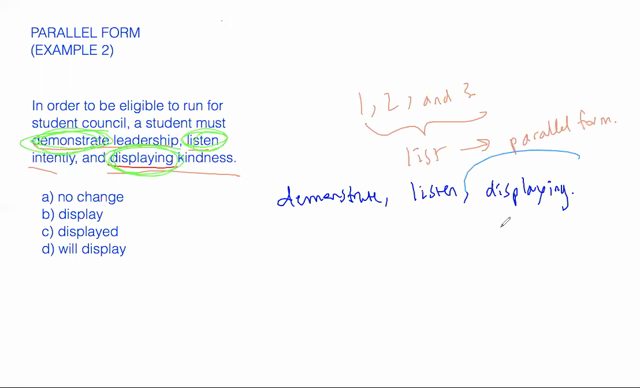 PARALLEL FORM
(EXAMPLE 2)
In order to be eligible to run for
student council, a student must
demonstrate leadership, listen
intently, and displaying kindness.
a) no change
b) display
c) displayed
d) will display
1, 2, and 3
list → parallel form.
demonstrate, listen, displaying.